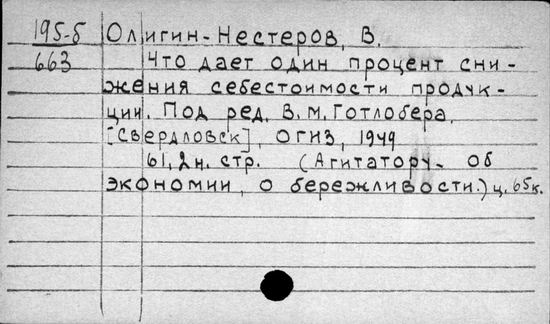 195-5 Олигин-Нестеров, В.
663 Что дает один процент сни-
жения себестоимости продук-
ции. Под ред. В.М. Готлобера.
[Свердловск], ОГИЗ, 1949
61,2н. стр. (Агитатору- об
экономии, о бережливости.) ц. 65к.